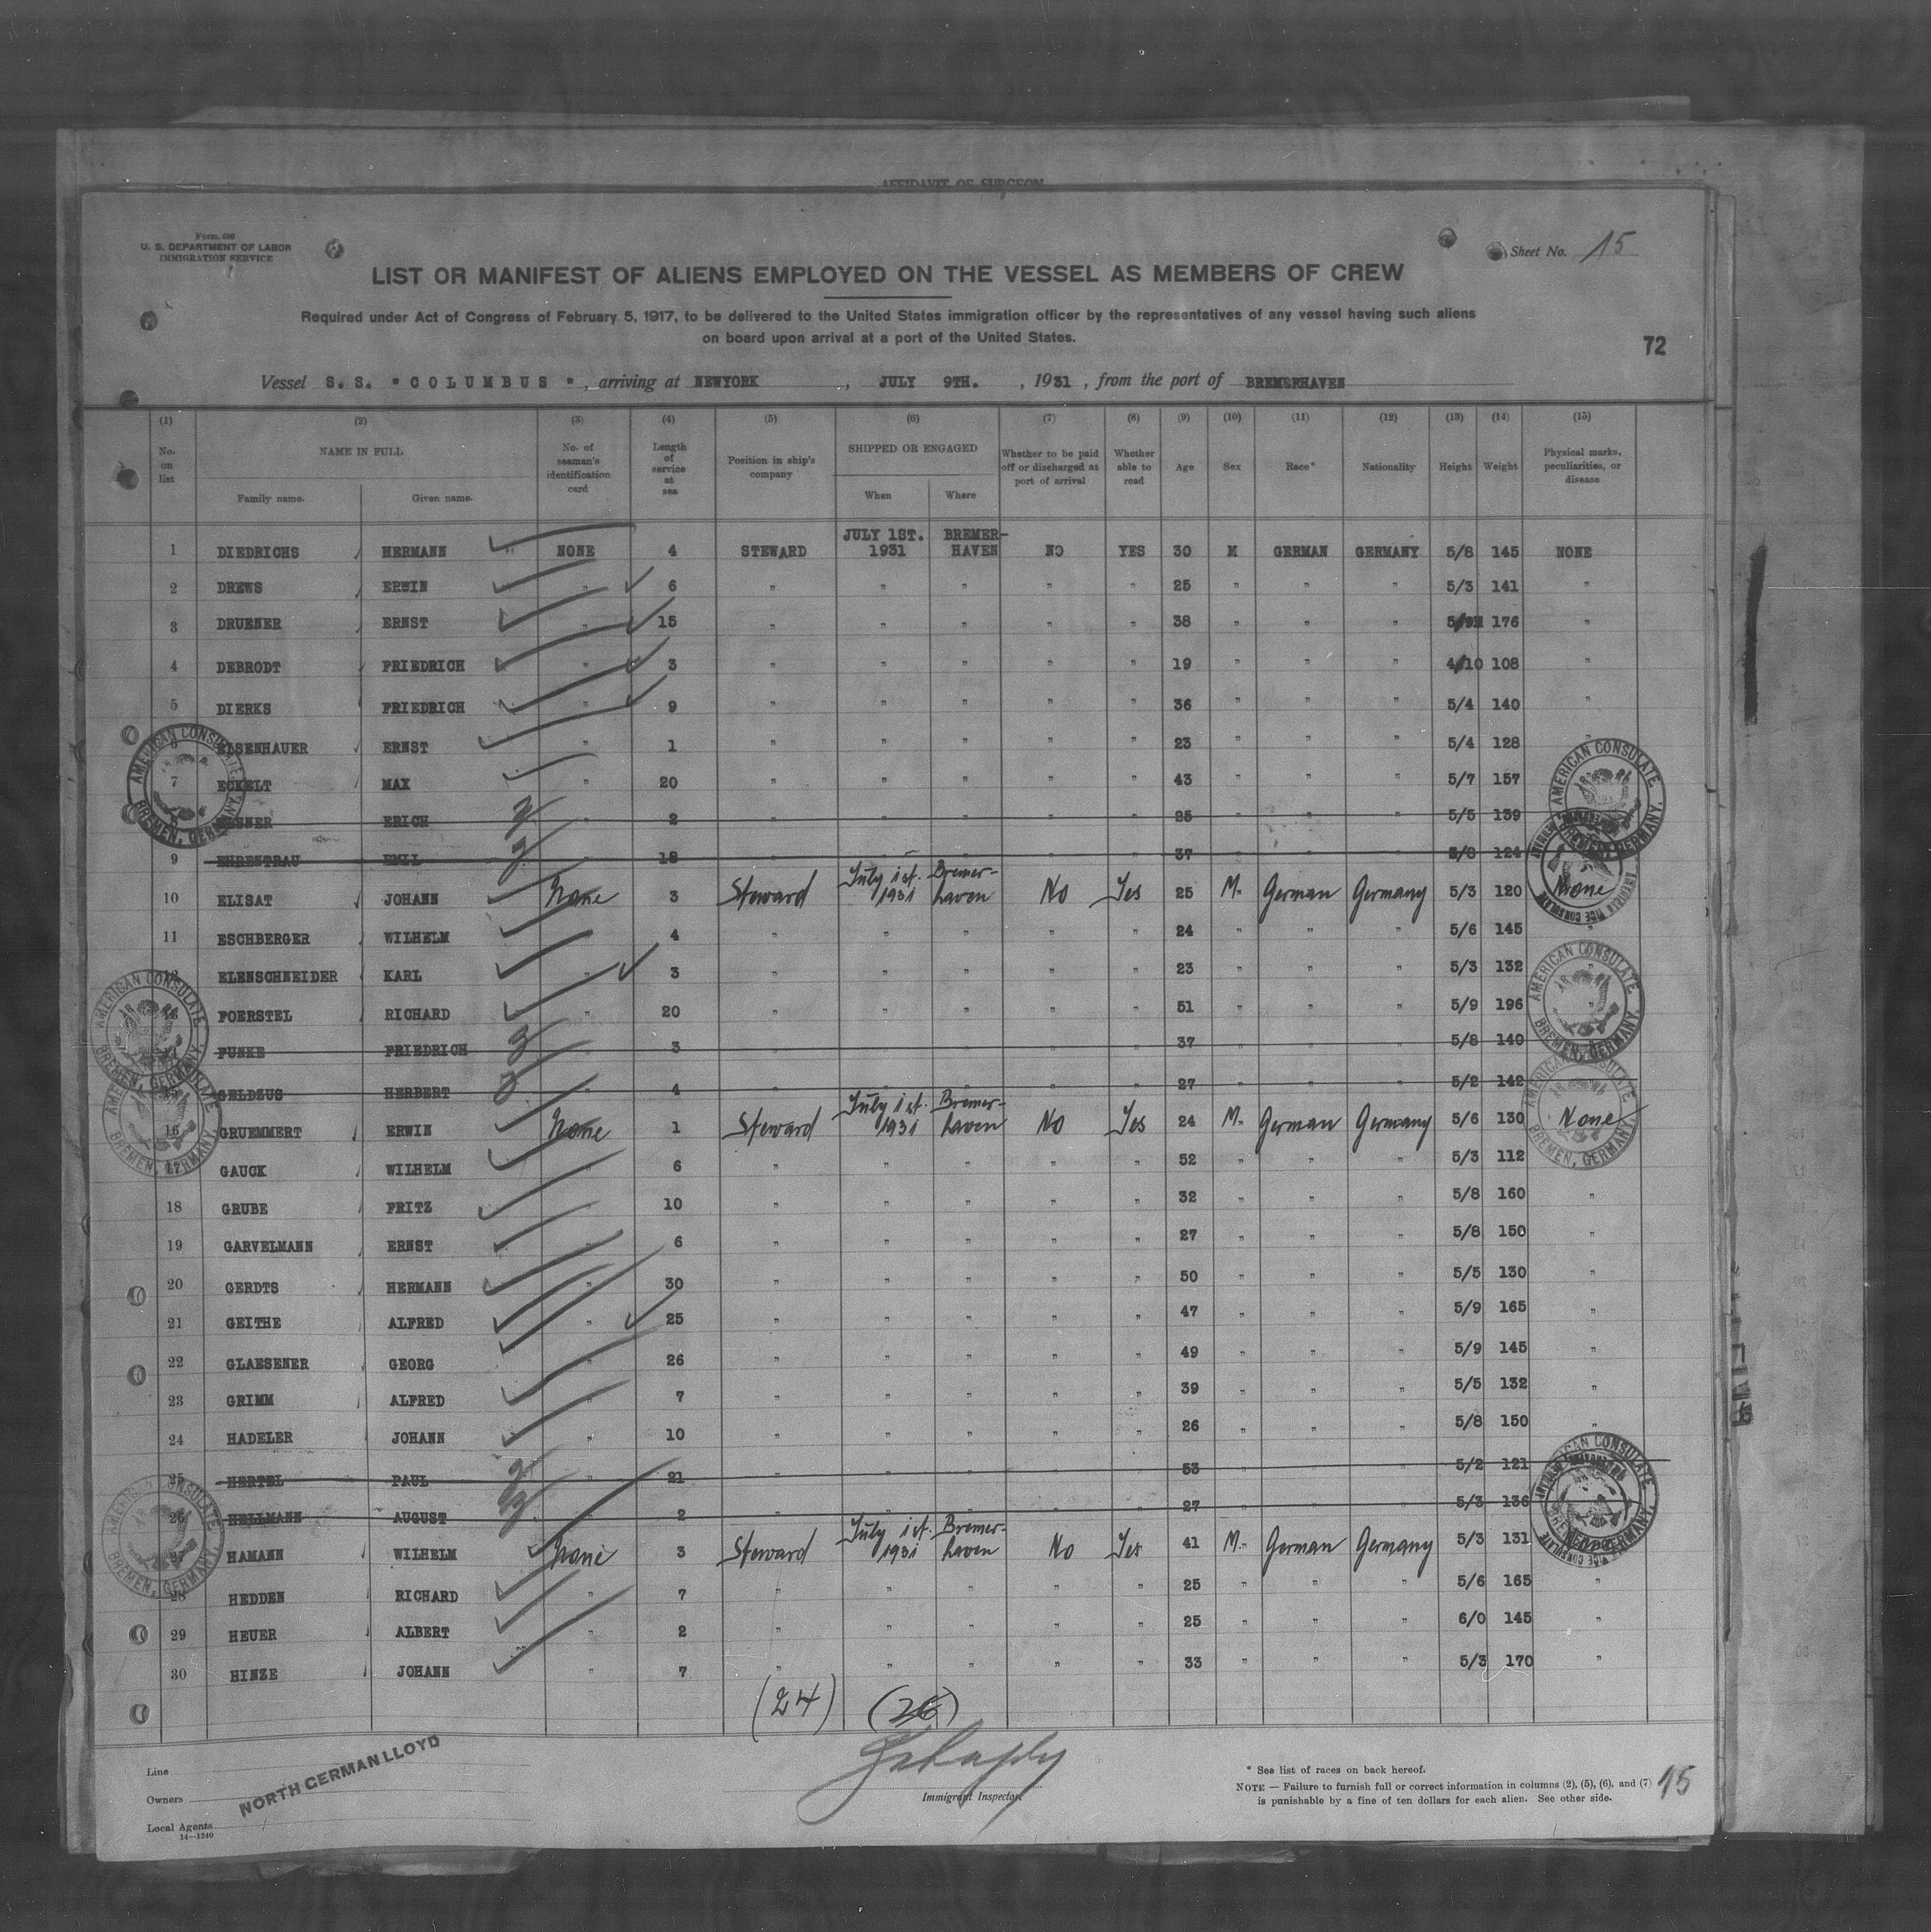 AFFIDAVIT OF SURGEON
Form 680
U. S. DEPARTMENT OF LABOR
IMMIGRATION SERVICE
Sheet No. 15
LIST OR MANIFEST OF ALIENS EMPLOYED ON THE VESSEL AS MEMBERS OF CREW
Required under Act of Congress of February 5, 1917, to be delivered to the United States immigration officer by the representatives of any vessel having such aliens
on board upon arrival at a port of the United States.
72
Vessel S. S. "COLUMBUS", arriving at NEWYORK, JULY 9TH., 1931, from the port of BREMERHAVEN
(1) (2) (3) (4) (5) (6) (7) (8) (9) (10) (11) (12) (13) (14) (15)
No. on list NAME IN FULL Family name. Given name. No. of seaman's identification card Length of service at sea Position in ship's company SHIPPED OR ENGAGED When Where Whether to be paid off or discharged at port of arrival Whether able to read Age Sex Race* Nationality Height Weight Physical marks, peculiarities, or disease
1 DIEDRICHS HERMANN NONE 4 STEWARD JULY 1ST. 1931 BREMER-HAVEN NO YES 30 M GERMAN GERMANY 5/8 145 NONE
2 DREWS ERWIN " 6 " " " " " 25 " " " 5/3 141 "
3 DRUENER ERNST " 15 " " " " " 38 " " " 176 "
4 DEBRODT FRIEDRICH " 3 " " " " " 19 " " " 4/10 108 "
5 DIERKS FRIEDRICH " 9 " " " " " 36 " " " 5/4 140 "
6 EISENHAUER ERNST " 1 " " " " " 23 " " " 5/4 128 "
7 ECKELT MAX " 20 " " " " " 43 " " " 5/7 157
8 ERICH 2 " " " " " 25 " " " 5/5 139
9 EHRENTRAU EMIL 18 " " " " " 37 " " " 124
10 ELISAT JOHANN None 3 Steward July 1st. 1931 Bremer-haven No Yes 25 M. German Germany 5/3 120 None
11 ESCHBERGER WILHELM 4 " " " " " 24 " " " 5/6 145 "
12 ELENSCHNEIDER KARL " 3 " " " " " 23 " " " 5/3 132 "
13 FOERSTEL RICHARD " 20 " " " " " 51 " " " 5/9 196
14 FUNKE FRIEDRICH 3 " " " " " 37 " " " 5/8 140
15 GELDZUS HERBERT " 4 " " " " " 27 " " " 5/2 142
16 GRUEMMERT ERWIN None 1 Steward July 1st. 1931 Bremer-haven No Yes 24 M. German Germany 5/6 130 None
17 GAUCK WILHELM " 6 " " " " " 52 " " " 5/3 112
18 GRUBE FRITZ " 10 " " " " " 32 " " " 5/8 160 "
19 GARVELMANN ERNST " 6 " " " " " 27 " " " 5/8 150 "
20 GERDTS HERMANN " 30 " " " " " 50 " " " 5/5 130 "
21 GEITHE ALFRED " 25 " " " " " 47 " " " 5/9 165 "
22 GLAESENER GEORG " 26 " " " " " 49 " " " 5/9 145 "
23 GRIMM ALFRED " 7 " " " " " 39 " " " 5/5 132 "
24 HADELER JOHANN " 10 " " " " " 26 " " " 5/8 150 "
25 HERTEL PAUL " 21 " " " " " 53 " " " 5/2 121
26 HELLMANN AUGUST 2 " " " " " 27 " " " 5/3 136
27 HAMANN WILHELM None 3 Steward July 1st. 1931 Bremer-haven No Yes 41 M. German Germany 5/3 131 None
28 HEDDEN RICHARD " 7 " " " " " 25 " " " 5/6 165 "
29 HEUER ALBERT " 2 " " " " " 25 " " " 6/0 145 "
30 HINZE JOHANN " 7 " " " " " 33 " " " 5/3 170 "
AMERICAN CONSULATE
BREMEN, GERMANY.
AMERICAN CONSULATE
BREMEN, GERMANY.
AMERICAN CONSULATE
BREMEN, GERMANY.
AMERICAN CONSULATE
BREMEN, GERMANY.
AMERICAN CONSULATE
BREMEN, GERMANY.
AMERICAN CONSULATE
BREMEN, GERMANY.
AMERICAN CONSULATE
BREMEN, GERMANY.
AMERICAN CONSULATE
BREMEN, GERMANY.
(24) (26)
Line
Owners
Local Agents
NORTH GERMAN LLOYD
14—1240
Immigrant Inspector.
* See list of races on back hereof.
NOTE — Failure to furnish full or correct information in columns (2), (5), (6), and (7)
is punishable by a fine of ten dollars for each alien. See other side.
15